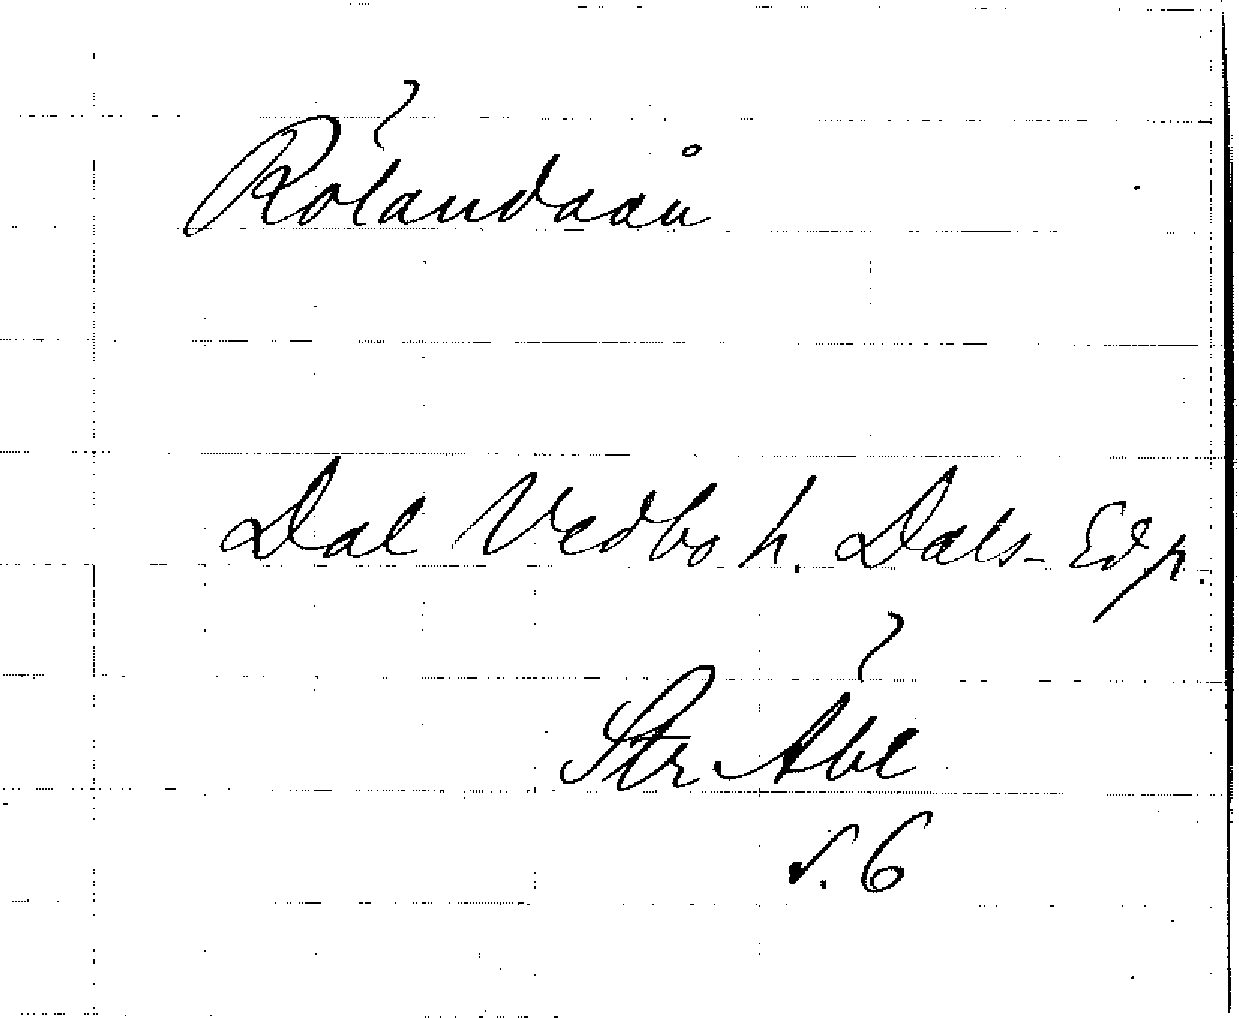 Rölandaån
Dal Vedbo h. Dals-Ed p.
Str. Abl
s. 6